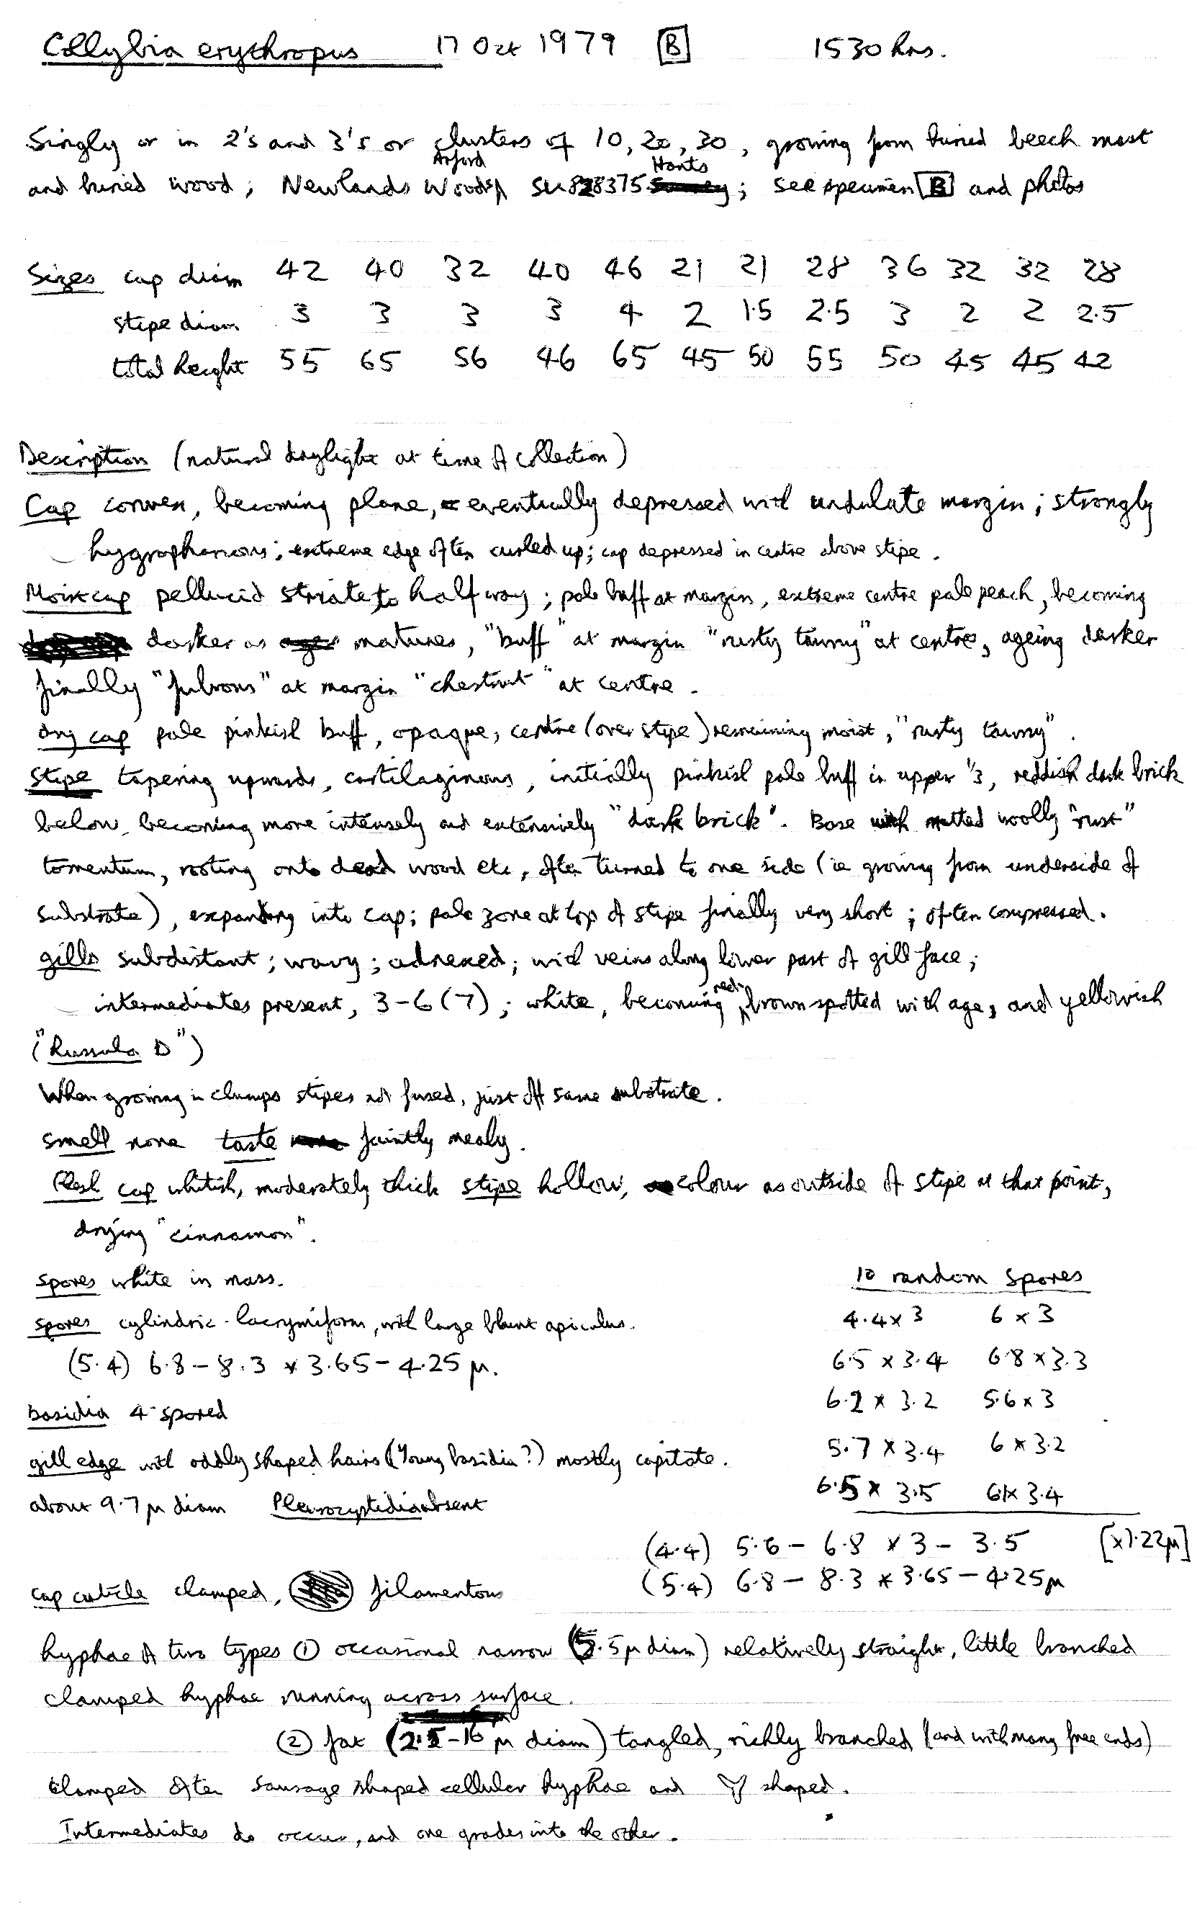 Collybia erythropus 17 Oct 1979 [B] 1530 hrs.
Singly or in 2's and 3's or clusters of 10, 20, 30, growing from buried beech mast
Arford Hants
and buried wood; Newlands Woods, SU828375 Surrey; see specimen [B] and photos
Sizes cap diam 42 40 32 40 46 21 21 28 36 32 32 28
stipe diam 3 3 3 3 4 2 1.5 2.5 3 2 2 2.5
total height 55 65 56 46 65 45 50 55 50 45 45 42
Description (natural daylight at time of collection)
Cap convex, becoming plane, eventually depressed with undulate margin; strongly
hygrophanous; extreme edge often curled up; cap depressed in centre above stipe.
Moist cap pellucid striate to halfway; pale buff at margin, extreme centre pale peach, becoming
darker as matures, "buff" at margin "rusty tawny" at centre, ageing darker
finally "fulvous" at margin "chestnut" at centre.
Dry cap pale pinkish buff, opaque, centre (over stipe) remaining moist, "rusty tawny".
Stipe tapering upwards, cartilaginous, initially pinkish pale buff in upper 1/3, reddish dark brick
below, becoming more intensely and extensively "dark brick". Base with matted woolly "rust"
tomentum, rooting onto dead wood etc, often turned to one side (ie growing from underside of
substrate), expanding into cap; pale zone at top of stipe finally very short; often compressed.
gills subdistant; wavy; adnexed; with veins along lower part of gill face;
intermediates present, 3-6 (7); white, becoming red-brown spotted with age, and yellowish
("Russula D")
When growing in clumps stipes not fused, just off same substrate.
smell none taste faintly mealy.
Flesh cap whitish, moderately thick stipe hollow, colour as outside of stipe at that point,
drying "cinnamon".
spores white in mass. 10 random spores
spores cylindric-lacrymiform, with large blunt apiculus. 4.4 x 3 6 x 3
(5.4) 6.8 - 8.3 x 3.65 - 4.25 µ. 6.5 x 3.4 6.8 x 3.3
basidia 4-spored 6.2 x 3.2 5.6 x 3
gill edge with oddly shaped hairs (Young basidia?) mostly capitate. 5.7 x 3.4 6 x 3.2
about 9.7 µ diam Pleurocystidia absent 6.5 x 3.5 6 x 3.4
(4.4) 5.6 - 6.8 x 3 - 3.5 [x1.22µ]
(5.4) 6.8 - 8.3 x 3.65 - 4.25µ
cap cuticle clamped, filamentous
hyphae of two types ① occasional narrow (5.5µ diam) relatively straight, little branched
clamped hyphae running across surface.
② fat (2.5-16 µ diam) tangled, richly branched (and with many free ends)
clamped often sausage shaped cellular hyphae and Y shaped.
Intermediates do occur, and one grades into the other.